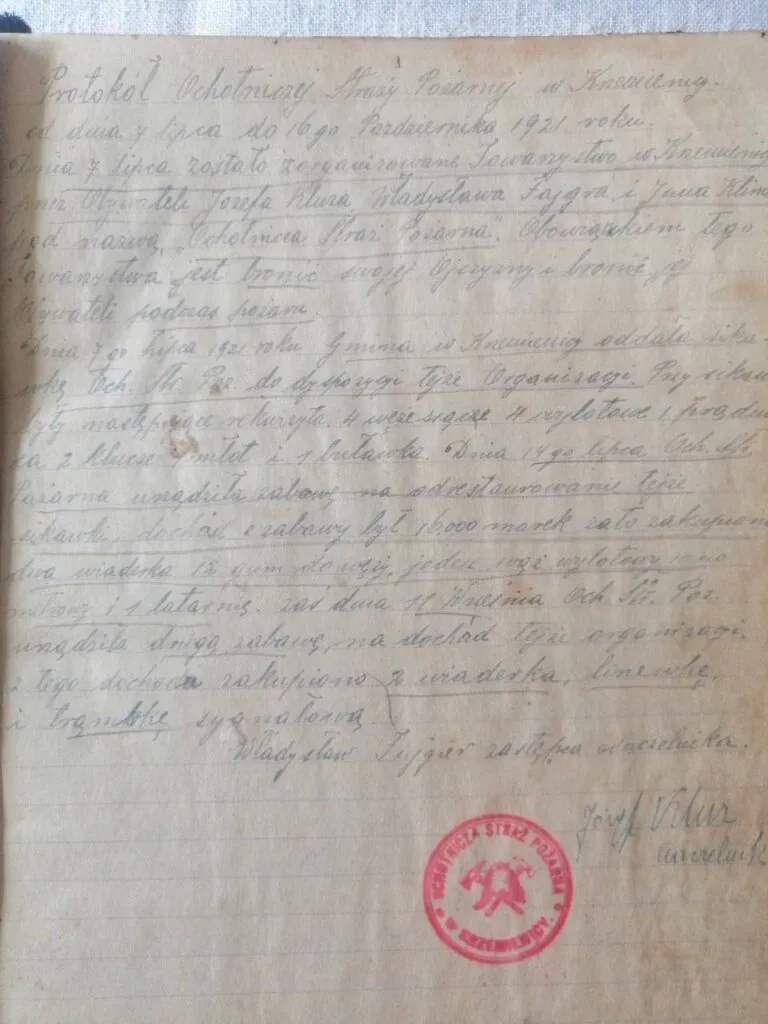 Protokół Ochotniczej Straży Pożarnej w Krzemienicy.
od dnia 7 lipca do 16go Października 1921 roku.
Dnia 7 lipca zostało zorganizowane Towarzystwo w Krzemienicy
przez Obywateli Józefa Kluza Władysława Fajgra i Jana Klina
pod nazwą "Ochotnicza Straż Pożarna". Obowiązkiem tego
Towarzystwa jest bronić swojej Ojczyzny i bronić jej
Obywateli podczas pożaru.
Dnia 7 go lipca 1921 roku Gmina w Krzemienicy oddała sika-
wkę Och. Str. Poż. do dyspozycji tejże Organizacji. Przy sikawce
były następujące rekwizyta. 4 węże ssące 4 wylotowe 1 prądni-
ca 2 klucze 1 młot i 1 buławka. Dnia 14 go lipca Och. Str.
Pożarna urządziła zabawę na odrestaurowanie tejże
sikawki, dochód z zabawy był 16000 marek zato zakupiono
dwa wiaderka 12 gum do węży, jeden wąż wylotowy
metrowy i 1 latarnię. zaś dnia 11 Września Och Str. Poż.
urządziła drugą zabawę, na dochód tejże organizacji.
z tego dochodu zakupiono 2 wiaderka, linewkę,
i trąmbkę sygnałową.
Władysław Fajgier zastępca naczelnika.
Józef Kluz
naczelnik
OCHOTNICZA STRAŻ POŻARNA
W KRZEMIENICY.